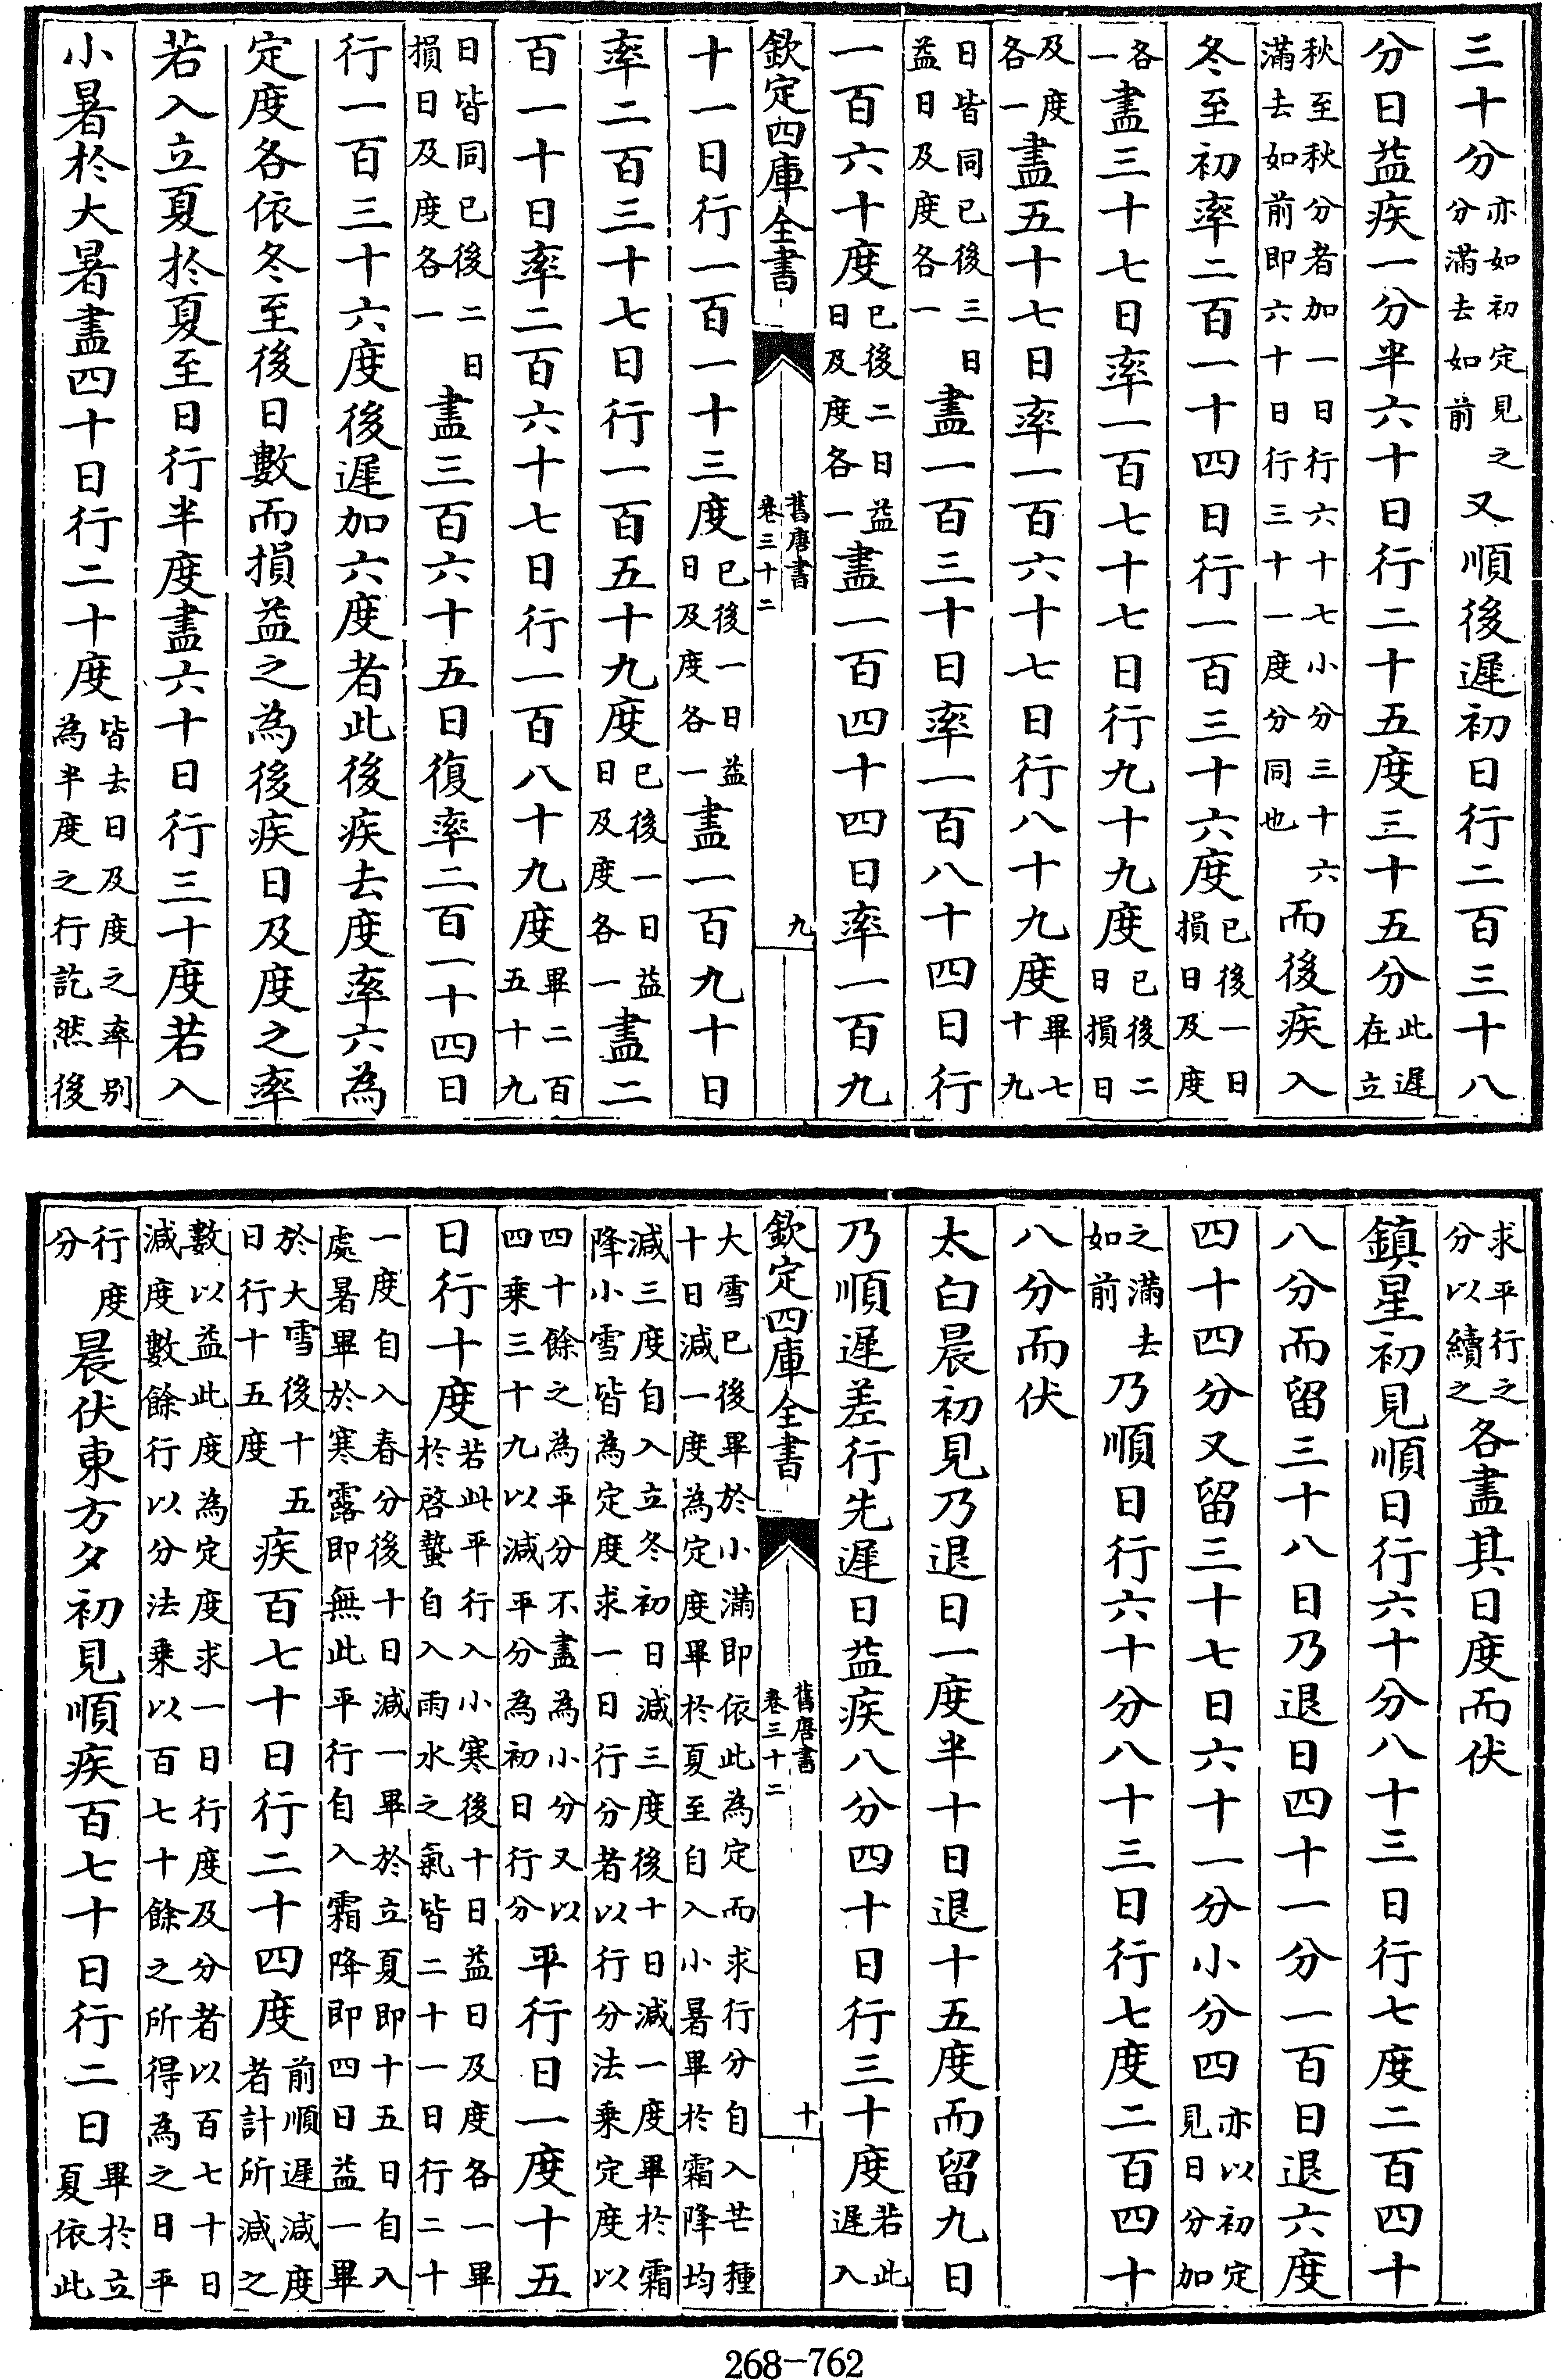 三十分亦如初定見之分滿去如前又順後遲初日行二百三十八
分日益疾一分半六十日行二十五度三十五分此遲在立
秋至秋分者加一日行六十七小分三十六滿去如前即六十日行三十一度分同也而後疾入
冬至初率二百一十四日行一百三十六度已後一日損日及度
各一盡三十七日率一百七十七日行九十九度已後二日損日
及度各一盡五十七日率一百六十七日行八十九度畢七十九
日皆同已後三日益日及度各一盡一百三十日率一百八十四日行
一百六十度已後二日益日及度各一盡一百四十四日率一百九
欽定四庫全書 舊唐書卷三十二 九
十一日行一百一十三度已後一日益日及度各一盡一百九十日
率二百三十七日行一百五十九度已後一日益日及度各一盡二
百一十日率二百六十七日行一百八十九度畢二百五十九
日皆同已後二日損日及度各一盡三百六十五日復率二百一十四日
行一百三十六度後遲加六度者此後疾去度率六為
定度各依冬至後日數而損益之為後疾日及度之率
若入立夏於夏至日行半度盡六十日行三十度若入
小暑於大暑盡四十日行二十度皆去日及度之率別為半度之行訖然後
求平行之分以續之各盡其日度而伏
鎮星初見順日行六十分八十三日行七度二百四十
八分而留三十八日乃退日四十一分一百日退六度
四十四分又留三十七日六十一分小分四亦以初定見日分加
之滿去如前乃順日行六十分八十三日行七度二百四十
八分而伏
太白晨初見乃退日一度半十日退十五度而留九日
乃順遲差行先遲日益疾八分四十日行三十度若此遲入
欽定四庫全書 舊唐書卷三十二 十
大雪已後畢於小滿即依此為定而求行分自入芒種十日減一度為定度畢於夏至自入小暑畢於霜降均
減三度自入立冬初日減三度後十日減一度畢於霜降小雪皆為定度求一日行分者以行分法乘定度以
四十餘之為平分不盡為小分又以四乘三十九以減平分為初日行分平行日一度十五
日行十度若此平行入小寒後十日益日及度各一畢於啓蟄自入雨水之氣皆二十一日行二十
一度自入春分後十日減一畢於立夏即十五日自入處暑畢於寒露即無此平行自入霜降即四日益一畢
於大雪後十五日行十五度疾百七十日行二十四度前順遲減度者計所減之
數以益此度為定度求一日行度及分者以百七十日減度數餘行以分法乘以百七十餘之所得為之日平
行度分晨伏東方夕初見順疾百七十日行二日畢於立夏依此
268-762